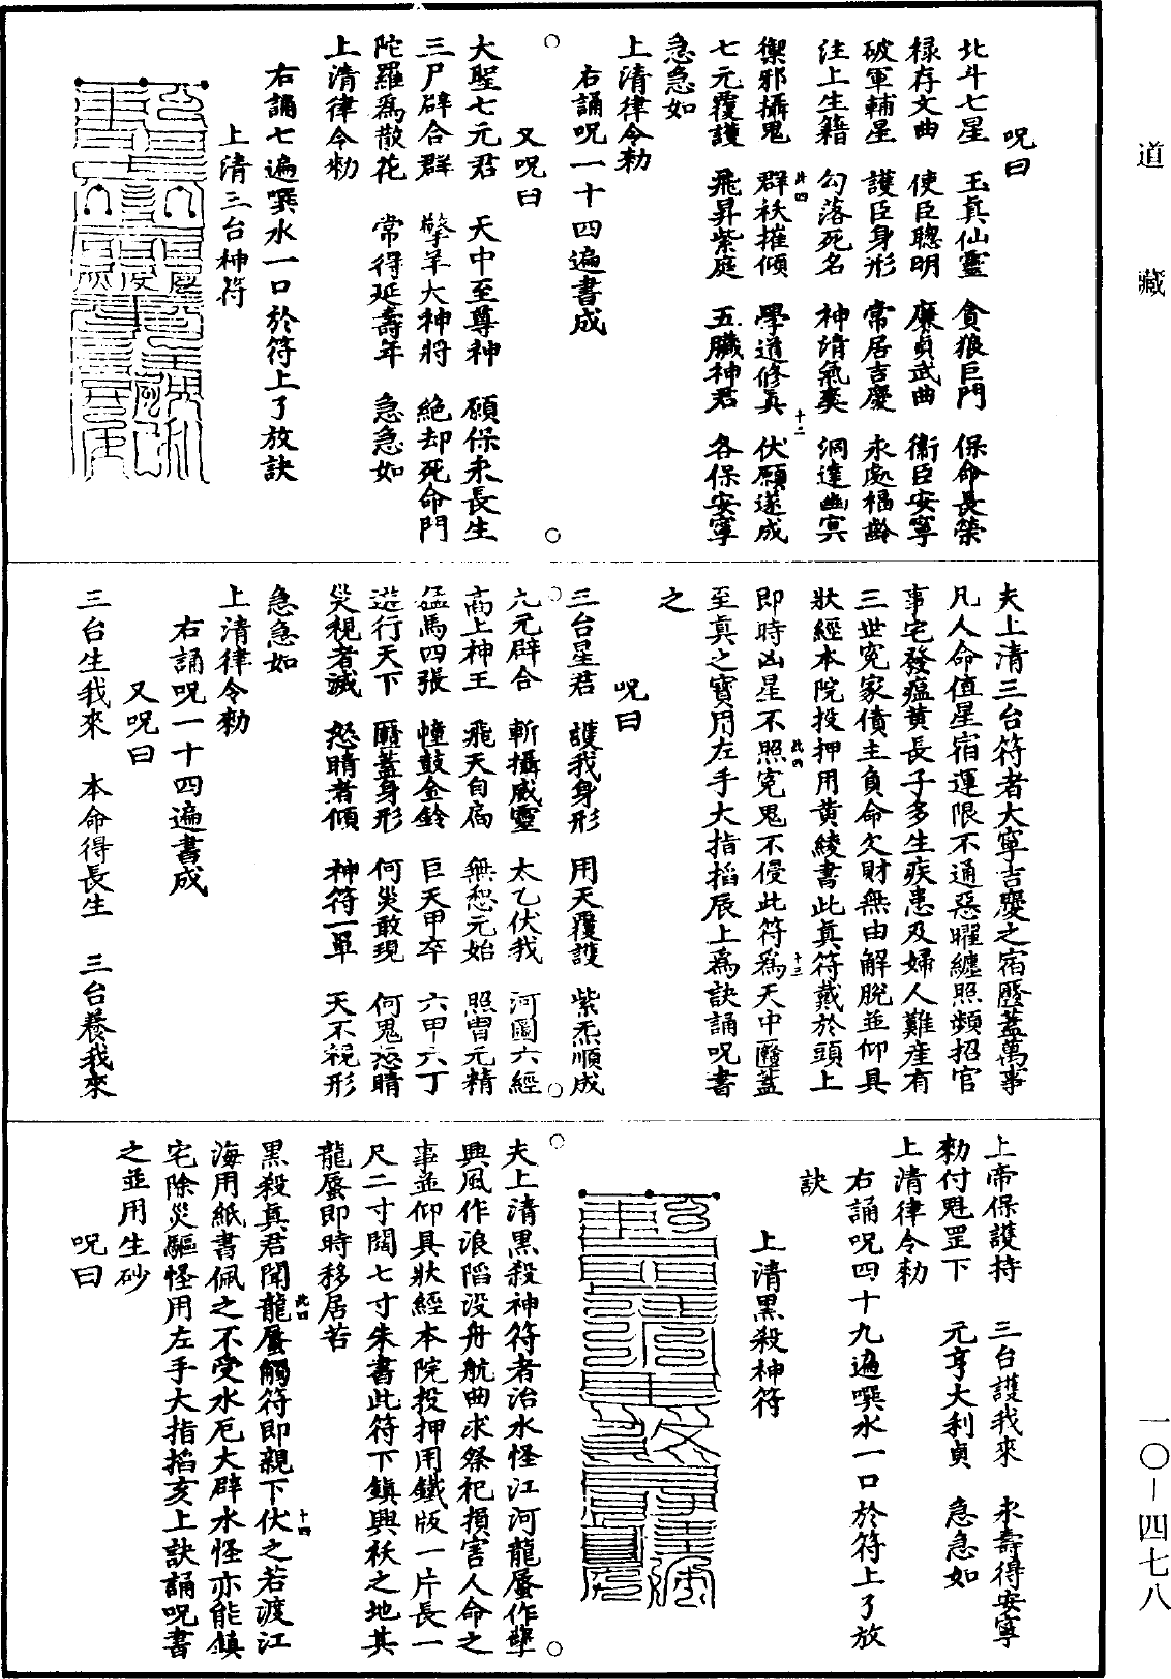 道藏
一〇－四七八
呪曰
北斗七星　玉真仙靈　貪狼巨門　保命長榮
祿存文曲　使臣聰明　廉貞武曲　衛臣安寧
破軍輔星　護臣身形　常居吉慶　永處福齡
注上生籍　勾落死名　神清氣爽　洞達幽冥
禦邪攝鬼　群祅摧傾　學道修真　伏願遂成
七元覆護　飛昇紫庭　五臟神君　各保安寧
急急如
上清律令勑
右誦呪一十四遍書成
又呪曰
大聖七元君　天中至尊神　願保永長生
三尸辟合群　擎羊大神將　絕却死命門
陀羅為散花　常得延壽年　急急如
上清律令勑
右誦七遍噀水一口於符上了放訣
上清三台神符
夫上清三台符者大寧吉慶之宿匽蓋萬事
凡人命值星宿運限不通惡曜纏照頻招官
事宅發瘟黃長子多生疾患及婦人難產有
三世冤家債主負命欠財無由解脫並仰具
狀經本院投押用黃綾書此真符戴於頭上
即時凶星不照冤鬼不侵此符為天中匽蓋
至真之寶用左手大指掐辰上為訣誦呪書
之
呪曰
三台星君　護我身形　用天覆護　紫炁順成
六元辟合　斬攝威靈　太乙伏我　河圖六經
高上神王　飛天自扃　無愆元始　照胄元精
猛馬四張　幢鼓金鈴　巨天甲卒　六甲六丁
遊行天下　匽蓋身形　何災敢現　何鬼怒睛
災視者滅　怒睛者傾　神符一單　天不視形
急急如
上清律令勑
右誦呪一十四遍書成
又呪曰
三台生我來　本命得長生　三台養我來
上帝保護持　三台護我來　永壽得安寧
勑付魁罡下　元亨大利貞　急急如
上清律令勑
右誦呪四十九遍噀水一口於符上了放
訣
上清黑殺神符
夫上清黑殺神符者治水怪江河龍蜃作孽
興風作浪陷没舟航曲求祭祀損害人命之
事並仰具狀經本院投押用鐵版一片長一
尺二寸闊七寸朱書此符下鎮興祅之地其
龍蜃即時移居若
黑殺真君聞龍蜃觸符即親下伏之若渡江
海用紙書佩之不受水厄大辟水怪亦能鎮
宅除災驅怪用左手大指掐亥上訣誦呪書
之並用生砂
呪曰